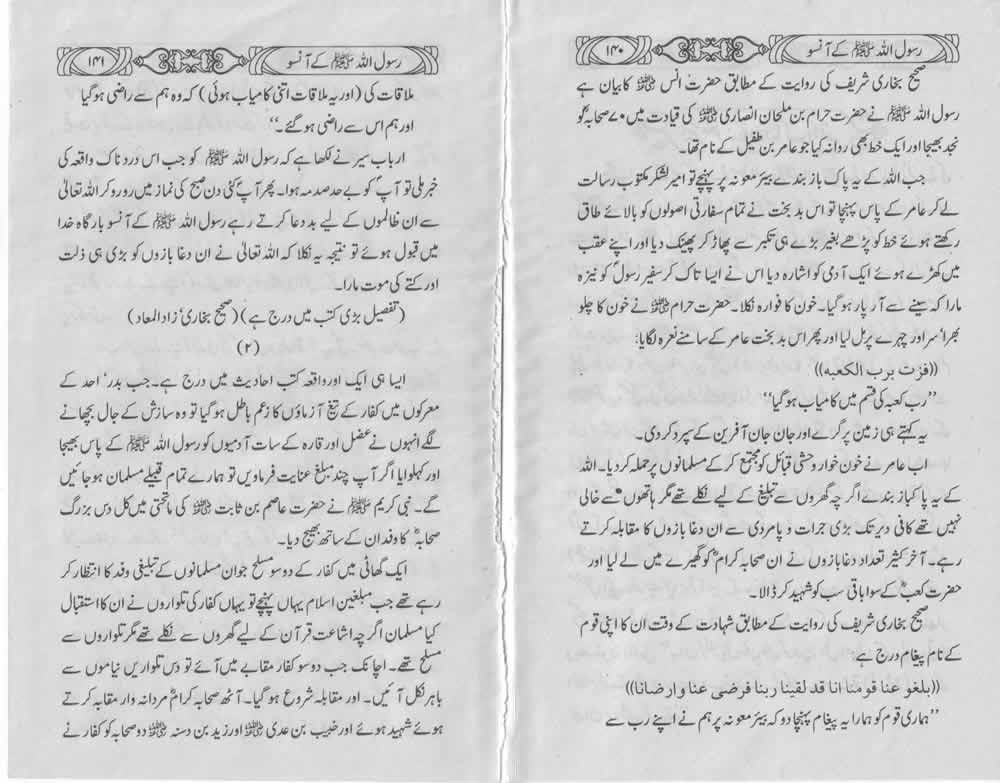 ۱۴۰ رسول اللہ ﷺ کے آنسو
صحیح بخاری شریف کی روایت کے مطابق حضرت انس ؓ کا بیان ہے
رسول اللہ ﷺ نے حضرت حرام بن ملحان انصاری ؓ کی قیادت میں ۷۰ صحابہؓ کو
نجد بھیجا اور ایک خط بھی روانہ کیا جو عامر بن طفیل کے نام تھا۔
جب اللہ کے یہ پاک باز بندے بیئر معونہ پر پہنچے تو امیر لشکر مکتوب رسالت
لے کر عامر کے پاس پہنچا تو اس بدبخت نے تمام سفارتی اصولوں کو بالائے طاق
رکھتے ہوئے خط کو پڑھے بغیر بڑے ہی تکبر سے پھاڑ کر پھینک دیا اور اپنے عقب
میں کھڑے ہوئے ایک آدمی کو اشارہ دیا اس نے ایسا تاک کر سفیر رسولؐ کو نیزہ
مارا کہ سینے سے آر پار ہو گیا۔ خون کا فوارہ نکلا۔ حضرت حرام ؓ نے خون کا چلو
بھرا' سر اور چہرے پر مل لیا اور پھر اس بدبخت عامر کے سامنے نعرہ لگایا:
((فزت برب الکعبه))
"رب کعبہ کی قسم میں کامیاب ہو گیا"
یہ کہتے ہی زمین پر گرے اور جان جان آفرین کے سپرد کر دی۔
اب عامر نے خون خوار وحشی قبائل کو مجتمع کر کے مسلمانوں پر حملہ کر دیا۔ اللہ
کے یہ پاکباز بندے اگرچہ گھروں سے تبلیغ کے لیے نکلے تھے مگر ہاتھوں سے خالی
نہیں تھے کافی دیر تک بڑی جرات و پامردی سے ان دغا بازوں کا مقابلہ کرتے
رہے۔ آخر کثیر تعداد دغابازوں نے ان صحابہ کرامؓ کو گھیرے میں لے لیا اور
حضرت کعبؓ کے سوا باقی سب کو شہید کر ڈالا۔
صحیح بخاری شریف کی روایت کے مطابق شہادت کے وقت ان کا اپنی قوم
کے نام پیغام درج ہے:
((بلغو عنا قومنا انا قد لقینا ربنا فرضی عنا وارضانا))
"ہماری قوم کو ہمارا یہ پیغام پہنچا دو کہ بیئر معونہ پر ہم نے اپنے رب سے
۱۴۱ رسول اللہ ﷺ کے آنسو
ملاقات کی (اور یہ ملاقات اتنی کامیاب ہوئی) کہ وہ ہم سے راضی ہو گیا
اور ہم اس سے راضی ہو گئے۔"
ارباب سیر نے لکھا ہے کہ رسول اللہ ﷺ کو جب اس دردناک واقعہ کی
خبر ملی تو آپؐ کو بے حد صدمہ ہوا۔ پھر آپؐ کئی دن صبح کی نماز میں رو رو کر اللہ تعالیٰ
سے ان ظالموں کے لیے بددعا کرتے رہے رسول اللہ ﷺ کے آنسو بارگاہ خدا
میں قبول ہوئے تو نتیجہ یہ نکلا کہ اللہ تعالیٰ نے ان دغا بازوں کو بڑی ہی ذلت
اور کتے کی موت مارا۔
(تفصیل بڑی کتب میں درج ہے) (صحیح بخاری' زاد المعاد)
(۲)
ایسا ہی ایک اور واقعہ کتب احادیث میں درج ہے۔ جب بدر' احد کے
معرکوں میں کفار کے تیغ آزماؤں کا زعم باطل ہو گیا تو وہ سازش کے جال بچھانے
لگے انہوں نے عضل اور قارہ کے سات آدمیوں کو رسول اللہ ﷺ کے پاس بھیجا
اور کہلوایا اگر آپ چند مبلغ عنایت فرمادیں تو ہمارے تمام قبیلے مسلمان ہو جائیں
گے۔ نبی کریم ﷺ نے حضرت عاصم بن ثابت ؓ کی ماتحتی میں کل دس بزرگ
صحابہؓ کا وفد ان کے ساتھ بھیج دیا۔
ایک گھاٹی میں کفار کے دو سو مسلح جوان مسلمانوں کے تبلیغی وفد کا انتظار کر
رہے تھے جب مبلغین اسلام یہاں پہنچے تو یہاں کفار کی تلواروں نے ان کا استقبال
کیا مسلمان اگرچہ اشاعت قرآن کے لیے گھروں سے نکلے تھے مگر تلواروں سے
مسلح تھے۔ اچانک جب دو سو کفار مقابے میں آئے تو دس تلواریں نیاموں سے
باہر نکل آئیں۔ اور مقابلہ شروع ہو گیا۔ آٹھ صحابہ کرامؓ مردانہ وار مقابلہ کرتے
ہوئے شہید ہوئے اور خبیب بن عدی ؓ اور زید بن دسنہ ؓ دو صحابہ کو کفار نے